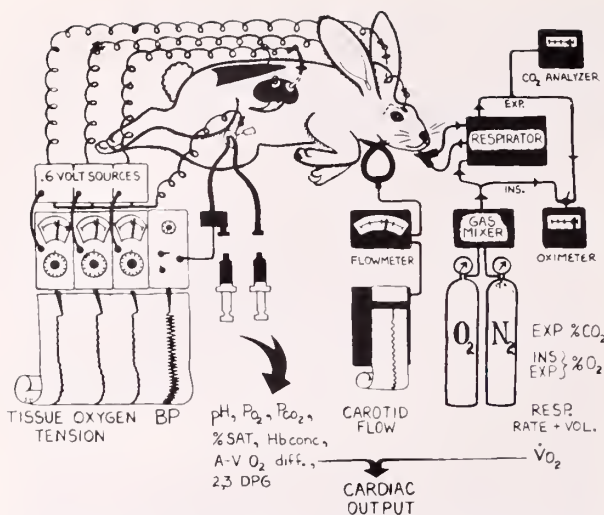 CO2 ANALYZER
EXP.
RESPIRATOR
INS.
.6 VOLT SOURCES
GAS
MIXER
FLOWMETER
OXIMETER
O2
N2
EXP %CO2
INS } %O2
EXP }
TISSUE OXYGEN
TENSION
BP
pH, PO2, PCO2,
% SAT, Hb conc,
A-V O2 diff.,
2,3 DPG
CAROTID
FLOW
RESP.
RATE + VOL.
V̇O2
CARDIAC
OUTPUT